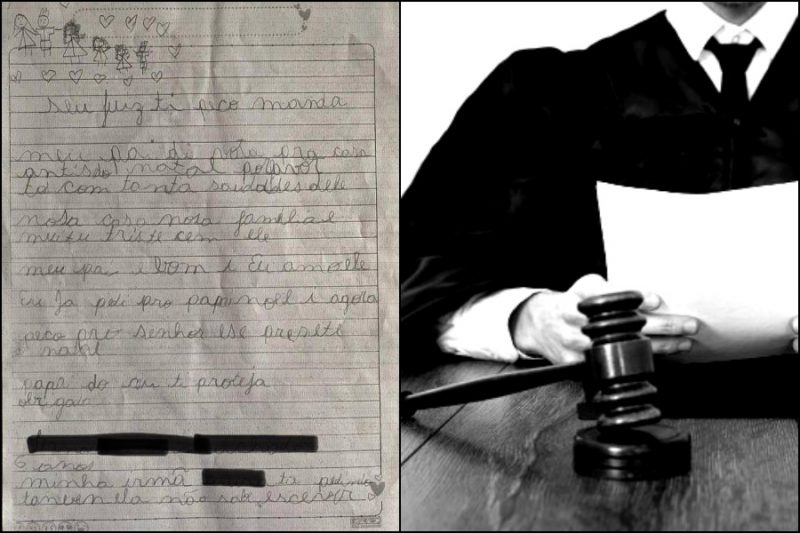 seu juz ti peco manda
meu pai di volta pra casa
antis do natal porfavor
ta com tanta saudades dele
nosa casa nosa familia e
muitu triste cem ele
meu pai e bom i Eu amo ele
Eu ja pedi pro papai noel i agora
peco pro senhor ese presete
natal
papai do ceu ti proteja
obrigado
6 anos
minha irmã ta pedindo
tanven ela não sabe escever